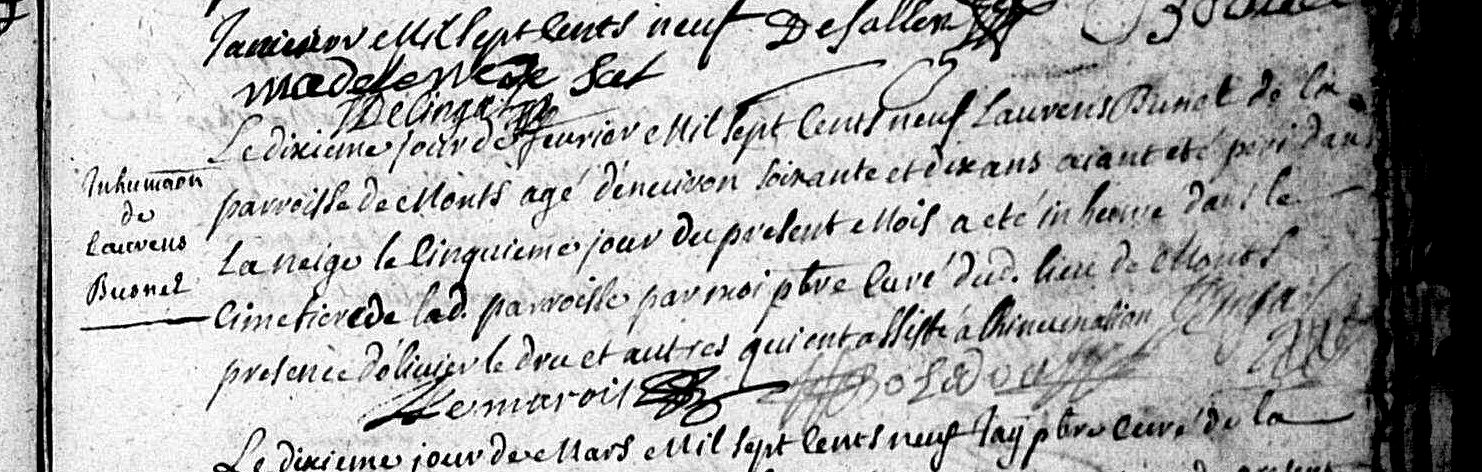 Janvier Mil sept Cents neuf Desallen
madelene de sal
Inhumaon
de
Laurens
Busnel
Le dixieme jour de fevrier Mil sept Cents neuf Laurens Busnel de la
parroisse de Monts agé d'environ soixante et dix ans aiant eté peri dans
La neige le Cinquieme jour du present Mois a eté inheumé dans le
Cimetierede lad. parroisse par moi pbre Curé dud. lieu de Monts
presence d'ólivier le dru et autres qui ont assisté a Lhinumation
Lemaroit
Le dixieme jour de Mars Mil sept Cents neuf Jay pbre curé de la